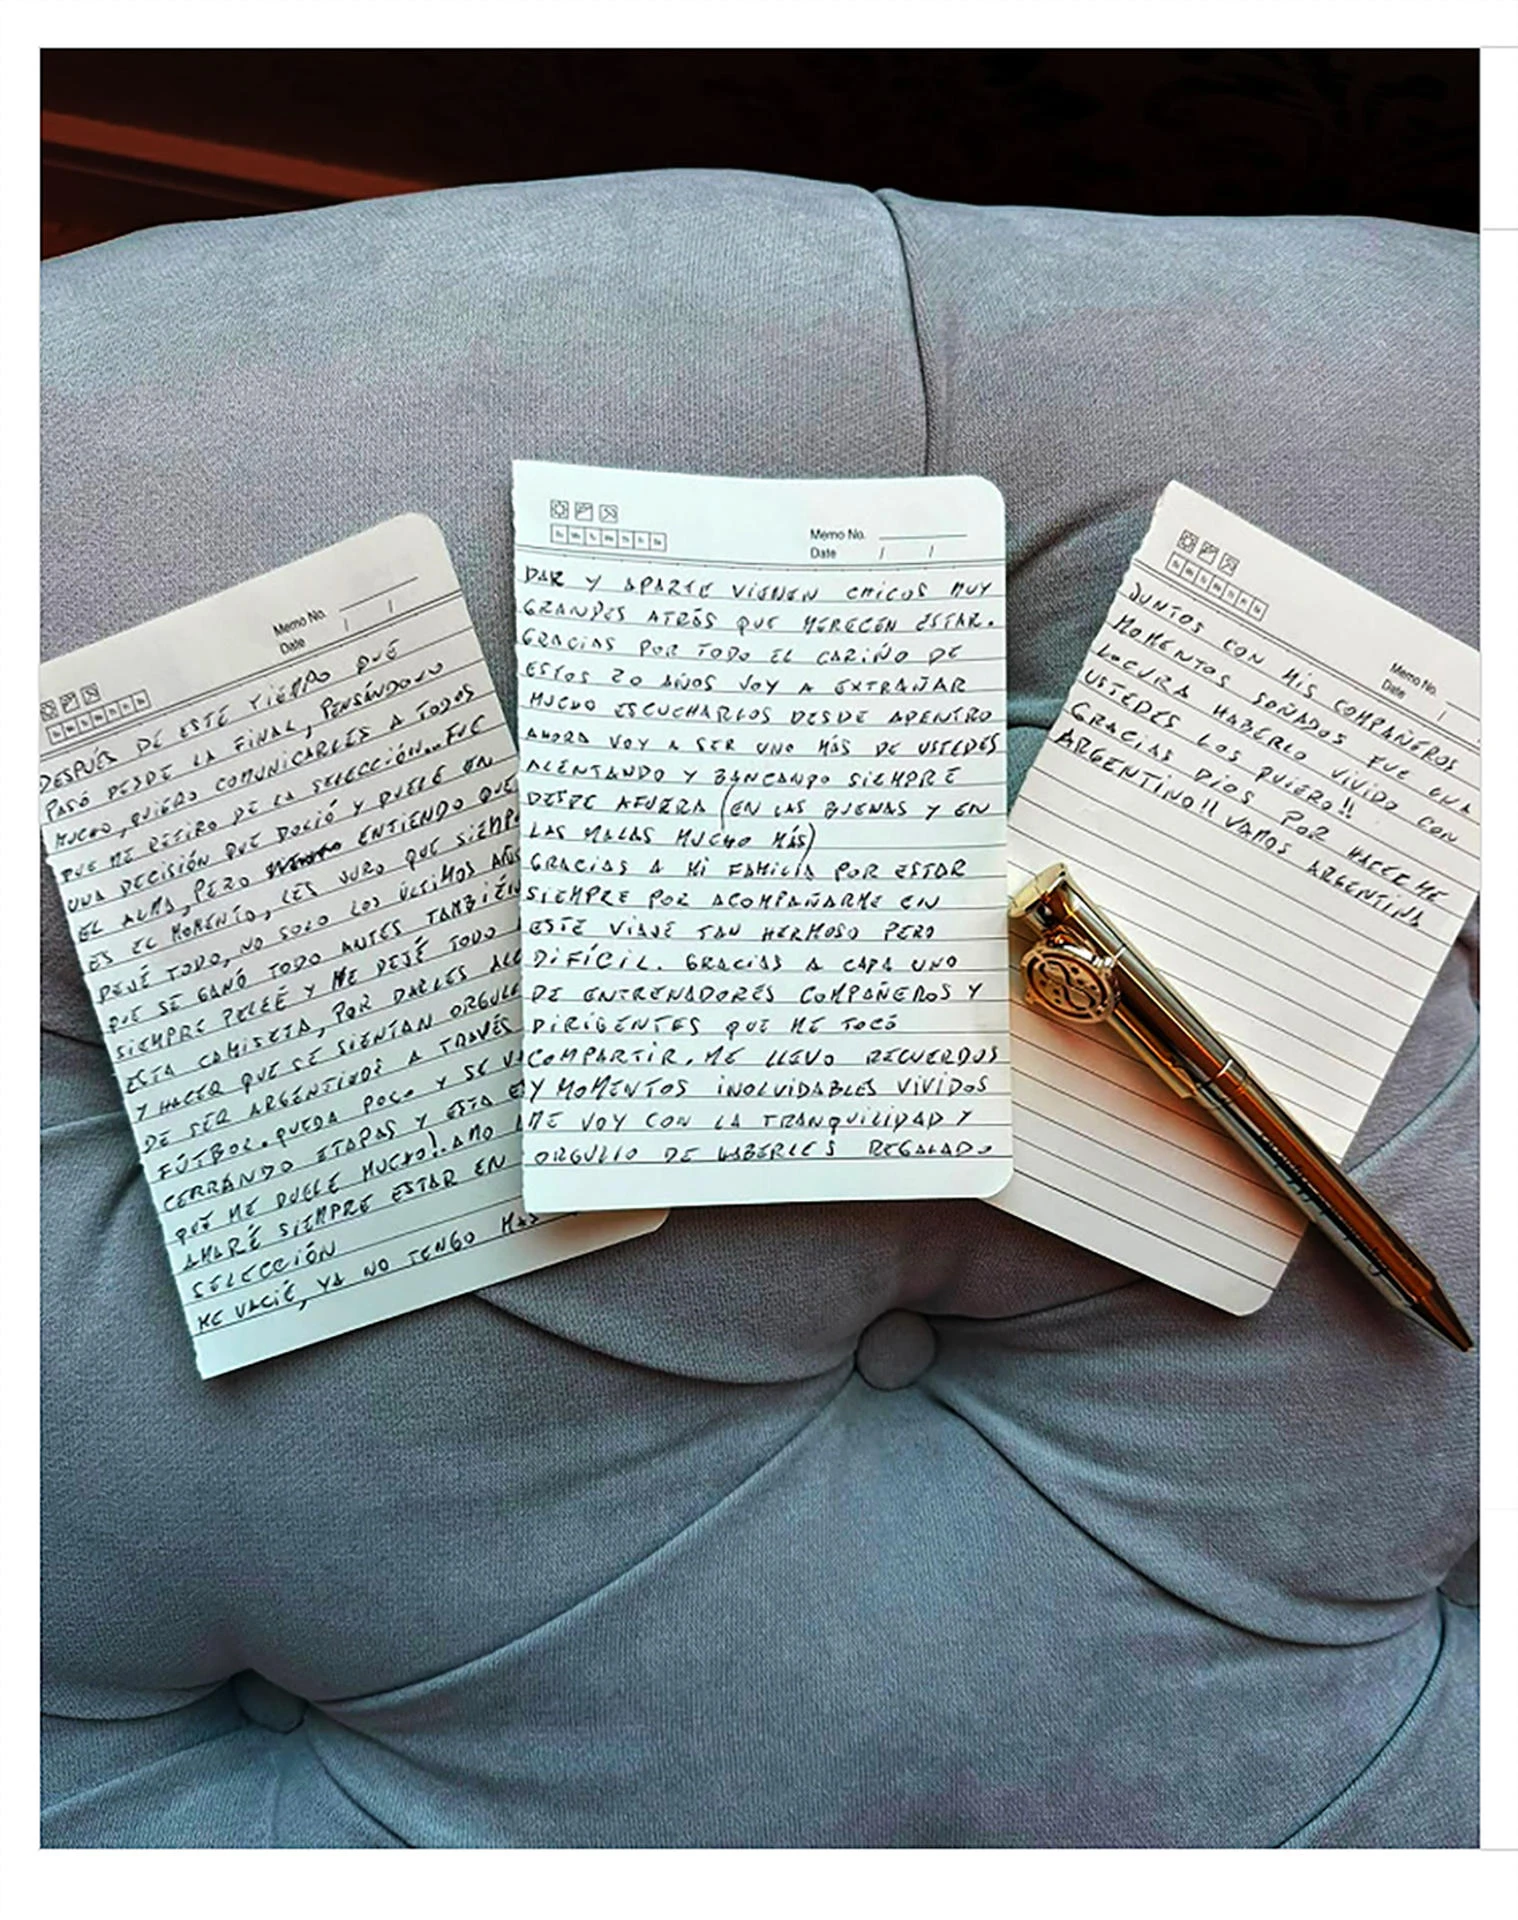 Memo No.
Date / /
DESPUÉS DE ESTE TIEMPO QUE
PASÓ DESDE LA FINAL, PENSÁNDOLO
MUCHO, QUIERO COMUNICARLES A TODOS
QUE ME RETIRO DE LA SELECCIÓN... FUE
UNA DECISIÓN QUE DOLIÓ Y DUELE EN
EL ALMA, PERO ENTIENDO QUE
ES EL MOMENTO, LES JURO QUE SIEMP
DEJÉ TODO, NO SOLO LOS ÚLTIMOS AÑOS
QUE SE GANÓ TODO ANTES TAMBIÉN
SIEMPRE PELEÉ Y ME DEJÉ TODO
ESTA CAMISETA, POR DARLES ALE
Y HACER QUE SE SIENTAN ORGULL
DE SER ARGENTINOS A TRAVÉS
FÚTBOL. QUEDA POCO Y SE VA
CERRANDO ETAPAS Y ESTA ES
QUE ME DUELE MUCHO!. AMO
AMARÉ SIEMPRE ESTAR EN
SELECCIÓN
ME VACIÉ, YA NO TENGO MAS
Memo No.
Date / /
DAR Y APARTE VIENEN CHICOS MUY
GRANDES ATRÁS QUE MERECEN ESTAR.
GRACIAS POR TODO EL CARIÑO DE
ESTOS 20 AÑOS VOY A EXTRAÑAR
MUCHO ESCUCHARLOS DESDE ADENTRO
AHORA VOY A SER UNO MÁS DE USTEDES
ALENTANDO Y BANCANDO SIEMPRE
DESDE AFUERA (EN LAS BUENAS Y EN
LAS MALAS MUCHO MÁS)
GRACIAS A MI FAMILIA POR ESTAR
SIEMPRE POR ACOMPAÑARME EN
ESTE VIAJE TAN HERMOSO PERO
DIFÍCIL. GRACIAS A CADA UNO
DE ENTRENADORES COMPAÑEROS Y
DIRIGENTES QUE ME TOCÓ
COMPARTIR. ME LLEVO RECUERDOS
Y MOMENTOS INOLVIDABLES VIVIDOS
ME VOY CON LA TRANQUILIDAD Y
ORGULLO DE HABERLES REGALADO
Memo No.
Date /
JUNTOS CON MIS COMPAÑEROS
MOMENTOS SOÑADOS FUE UNA
LOCURA HABERLO VIVIDO CON
USTEDES LOS QUIERO!!
GRACIAS DIOS POR HACERME
ARGENTINO!! VAMOS ARGENTINA